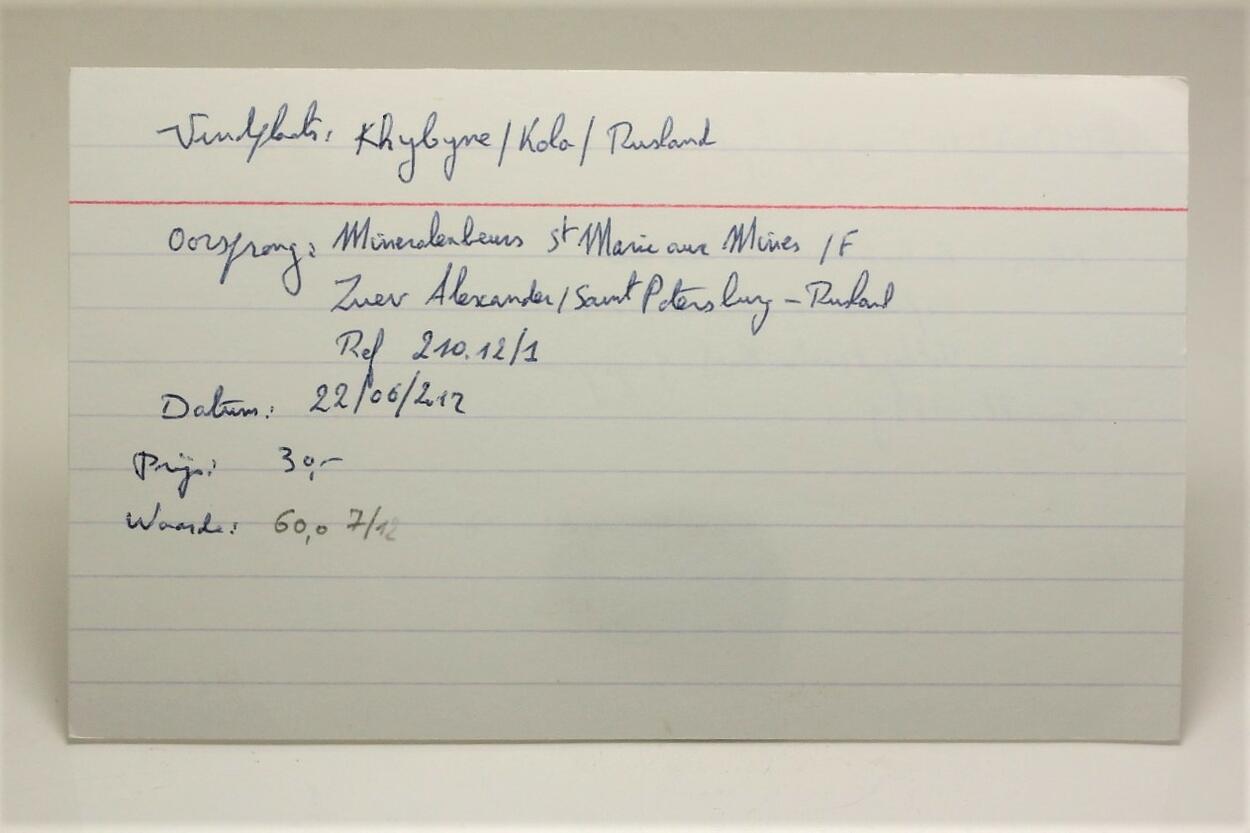 Vindplaats: Khybyne/Kola/Rusland
Oorsprong: Mineralenbeurs St Marie aux Mines /F
Zuev Alexander/Saint Petersburg - Rusland
Ref 210.12/1
Datum: 22/06/2012
Prijs: 30,-
Waarde: 60,0 7/12